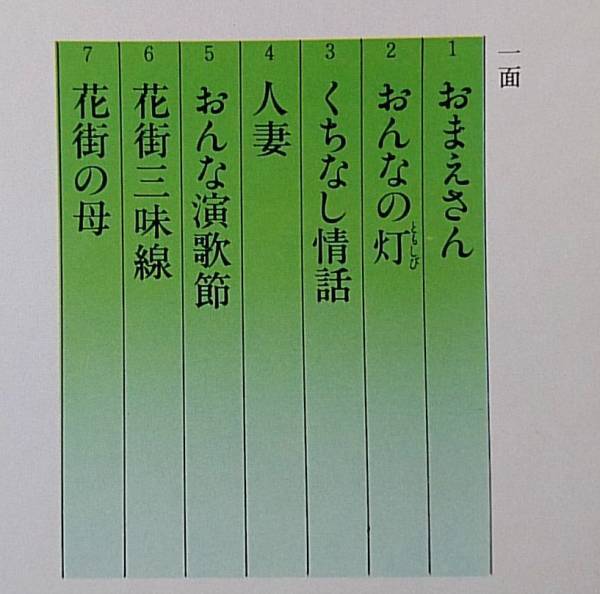 一面
1 おまえさん
2 おんなの灯
ともしび
3 くちなし情話
4 人妻
5 おんな演歌節
6 花街三味線
7 花街の母